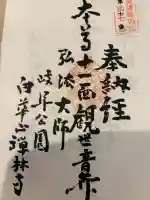 奉納経
本尊十一面観世音作
弘法大師
岐阜公園
白華山禅林寺